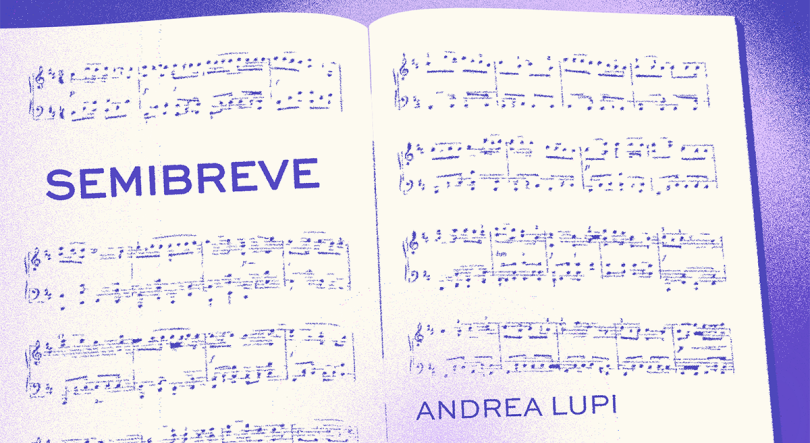 SEMIBREVE
ANDREA LUPI